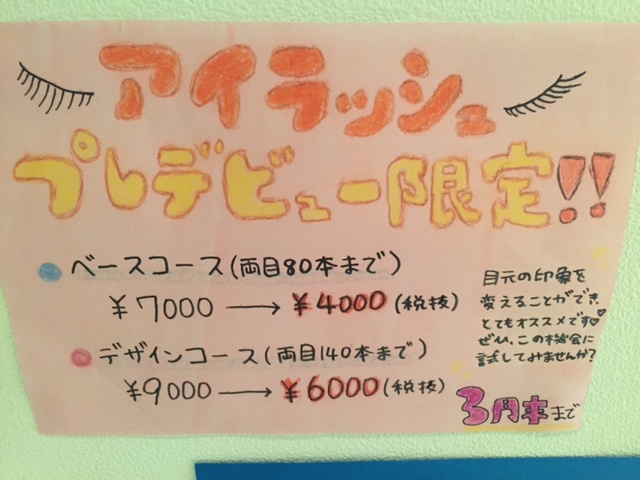 アイラッシュ
プレデビュー限定!!
ベースコース(両目80本まで)
¥7000 → ¥4000 (税抜)
デザインコース(両目140本まで)
¥9000 → ¥6000 (税抜)
目元の印象を
変えることができ、
とてもオススメです♡
ぜひ、この機会に
試してみませんか?
3月末まで